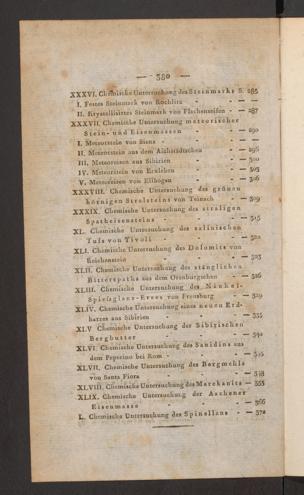 — 380 —
XXXVI. Chemische Untersuchung des Steinmarks S. 285
I. Festes Steinmark von Rochlitz - — —
II. Krystallisirtes Steinmark von Flachenseifen - — 287
XXXVII. Chemische Untersuchung meteorischer
Stein- und Eisenmassen - — 290
I. Meteorstein von Siena - — —
II. Meteorstein aus dem - — 298
III. Meteoreisen aus Sibirien - — 300
IV. Meteorstein von Erxleben - — 303
V. Meteoreisen von Ellbogen - — 306
XXXVIII. Chemische Untersuchung des grünen
körnigen Strolsteins von Teinach - — 309
XXXIX. Chemische Untersuchung des stralligen
Spatheisensteins - — 315
XL. Chemische Untersuchung des salinischen
Tufs von Tivoli - — 322
XLI. Chemische Untersuchung des Dolomits von
Reichenstein - — 323
XLII. Chemische Untersuchung des stänglichen
Bitterspaths aus dem Orenburgschen - — 326
XLIII. Chemische Untersuchung des Nickel-
Spiefsglanz-Erzes von Freusburg - — 329
XLIV. Chemische Untersuchung eines neuen Erd-
harzes aus Sibirien - — 335
XLV Chemische Untersuchung der Sibirischen
Bergbutter - — 340
XLVI. Chemische Untersuchung des Sanidins aus
dem Peperino bei Rom - —
XLVII. Chemische Untersuchung des Bergmehls
von Santa Fiora - — 348
XLVIII. Chemische Untersuchung des Marekanits — 353
XLIX. Chemische Untersuchung der Aachener
Eisenmasse - — 366
L. Chemische Untersuchung des Spinellans - — 372